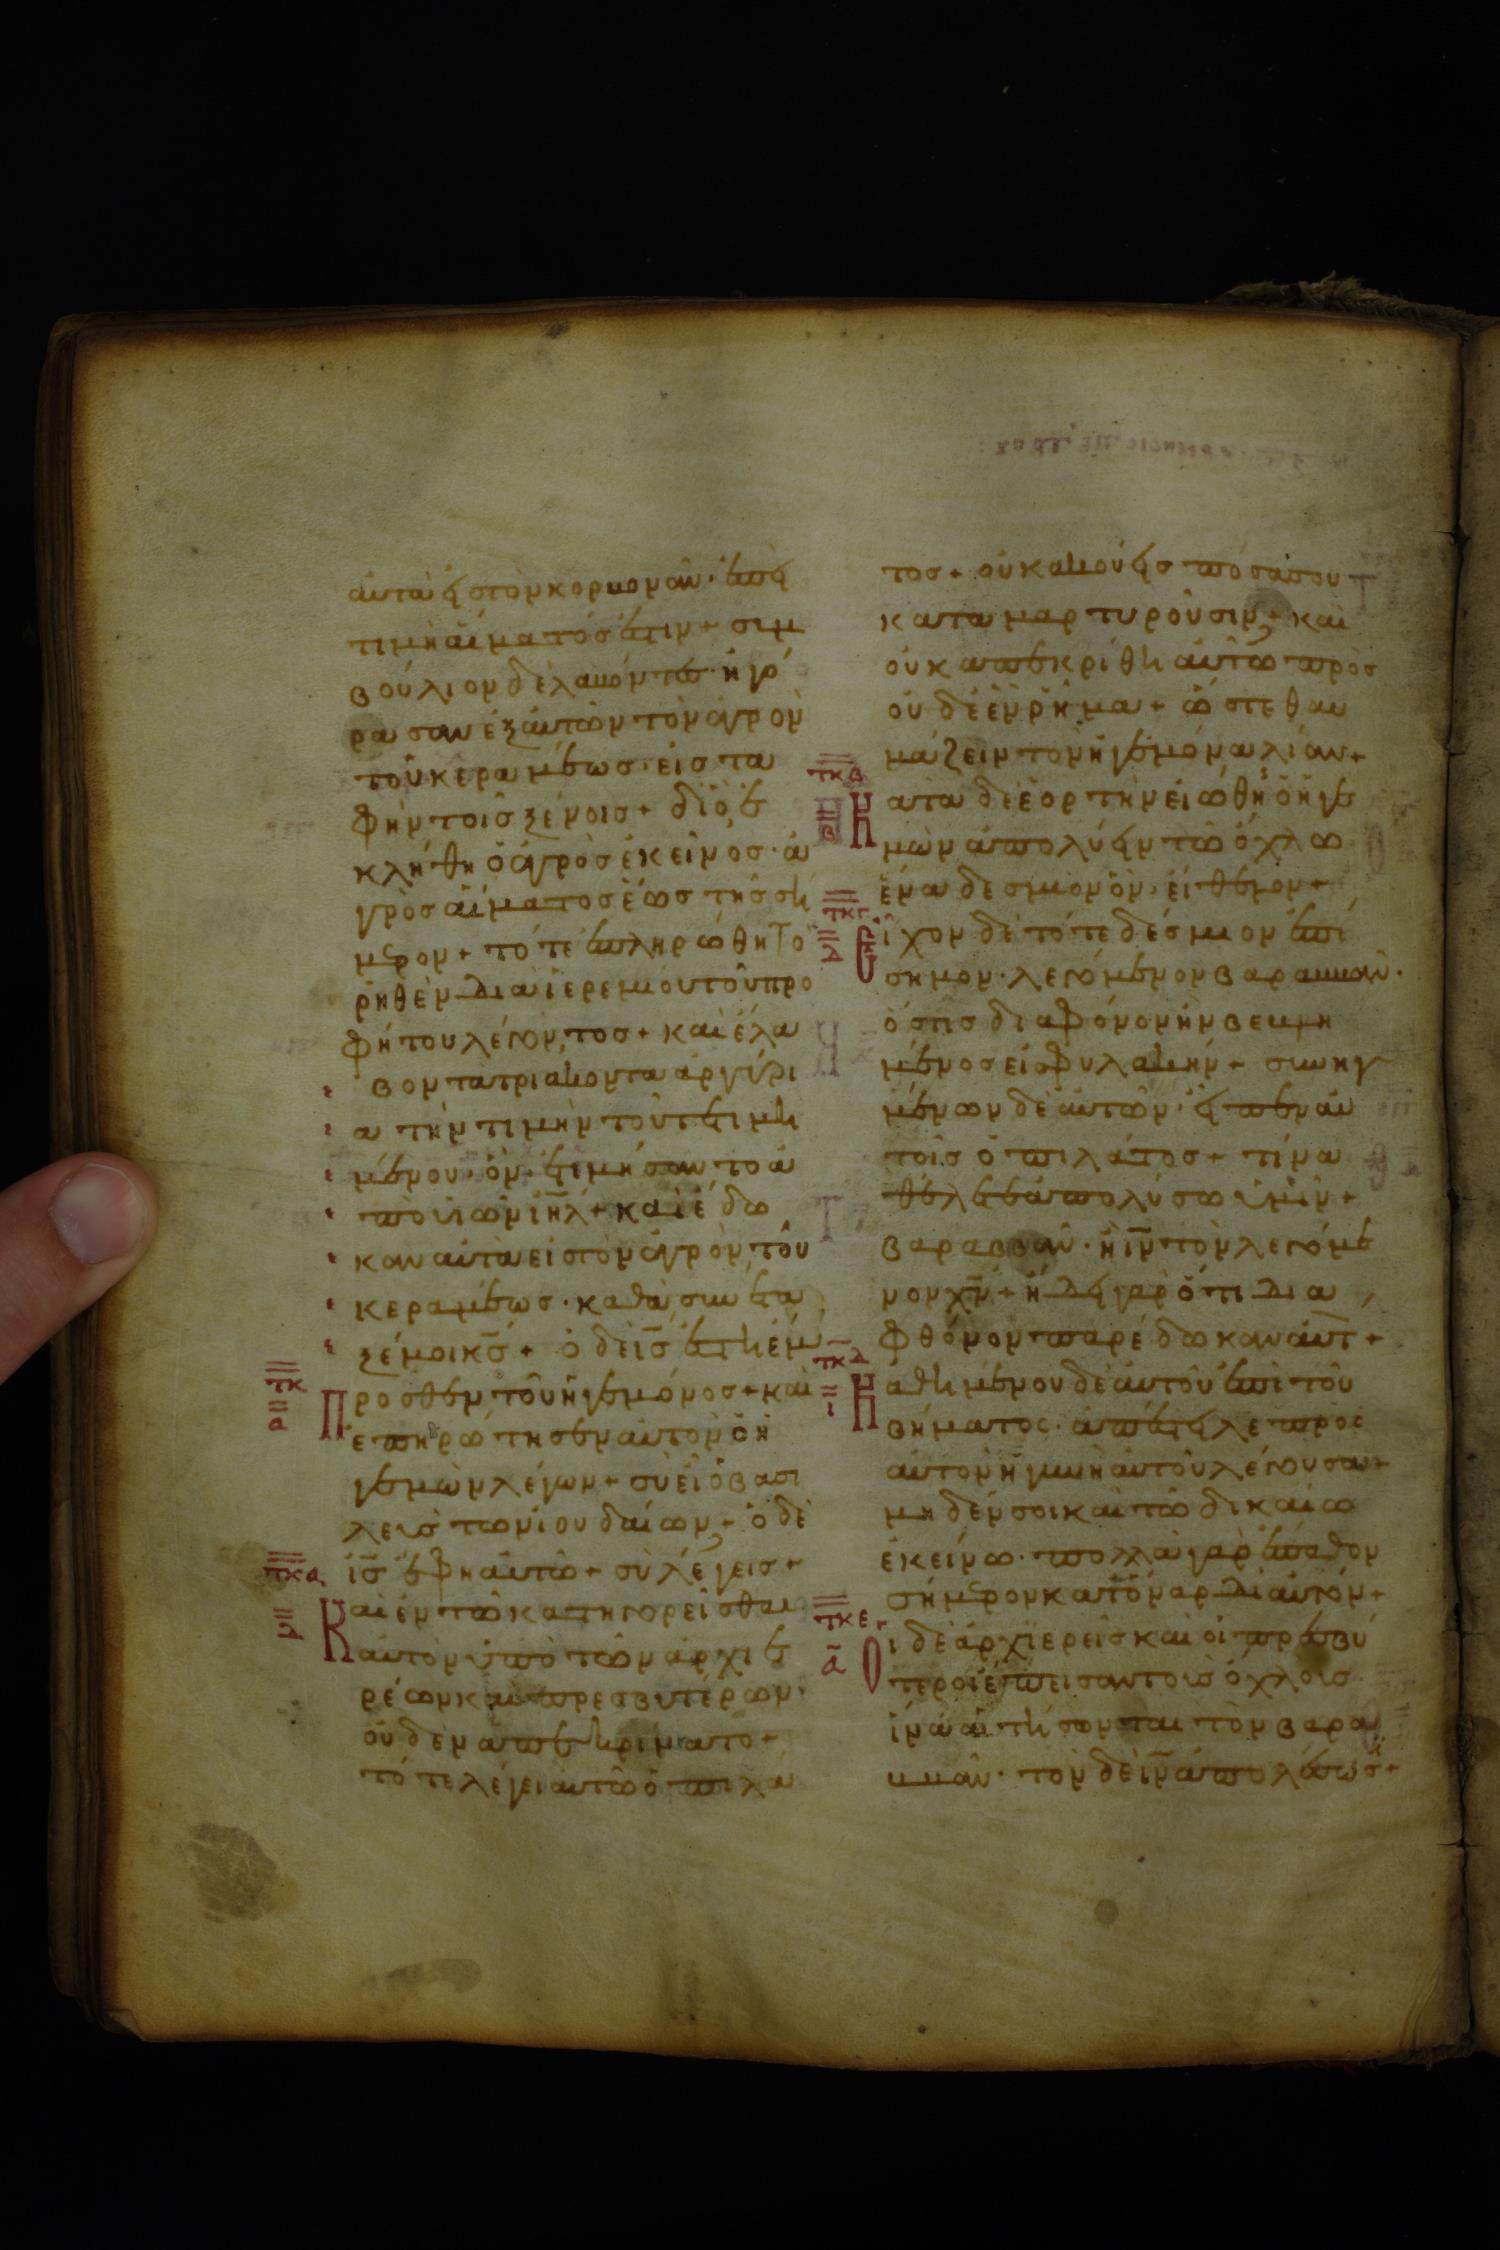 αὐτὰ εἰς τὸν κορβονᾶν· ἐπεὶ
τιμὴ αἵματός ἐστιν+ συμ
βούλιον δὲ λαβόντες· ἠγό
ρασαν ἐξ αὐτῶν τὸν ἀγρὸν
τοῦ κεραμέως· εἰς τα
φὴν τοῖς ξένοις+ διὸ ἐ
κλήθη ὁ ἀγρὸς ἐκεῖνος· ἀ
γρὸς αἵματος ἕως τῆς σή
μερον+ τότε ἐπληρώθη τὸ
ῥηθὲν διὰ ἱερεμίου τοῦ προ
φήτου λέγοντος+ καὶ ἔλα
βον τὰ τριάκοντα ἀργύρι
α τὴν τιμὴν τοῦ τετιμη
μένου· ὃν ἐτιμήσαντο ἀ
πὸ υἱῶν ιη̅λ+ καὶ ἔδω
καν αὐτὰ εἰς τὸν ἀγρὸν τοῦ
κεραμέως· καθὰ συνέτα
ξέν μοι κ̅ς+ ὁ δὲ ι̅ς ἔστη ἔμ
τκ
α
Προσθεν τοῦ ἡγεμόνος+ καὶ
ἐπηρώτησεν αὐτὸν ὁ ἡ
γεμὼν λέγων+ σὺ εἶ ὁ βασι
λεὺς τῶν ἰουδαίων+ ὁ δὲ
τκα
ι̅ς ἔφη αὐτῶ+ σὺ λέγεις+
δ
Καὶ ἐν τῶ κατηγορεῖσθαι
αὐτὸν ὑπὸ τῶν ἀρχιε
ρέων καὶ πρεσβυτέρων·
οὐδὲν ἀπεκρίνατο+
τότε λέγει αὐτῶ ὁ πιλά
τος+ οὐκ ἀκούεις πόσα σου
καταμαρτυροῦσιν+ καὶ
οὐκ ἀπεκρίθη αὐτῶ πρὸς
οὐδὲ ἓν ῥῆμα+ ὥστε θαυ
μάζειν τὸν ἡγεμόνα λίαν+
τκβ
β
Κατὰ δὲ ἑορτὴν εἰώθη ὁ ἡγε
μὼν ἀπολύειν τῶ ὄχλω
ἕνα δέσμιον ὃν· ἤθελον+
τκγ
δ
Εἶχον δὲ τότε δέσμιον ἐπί
σημον· λεγόμενον βαραββᾶν·
ὅστις διὰ φόνον ἦν βεβλη
μένος εἰς φυλακήν+ συνηγ
μένων δὲ αὐτῶν· εἶπεν αὐ
τοῖς ὁ πιλάτος+ τίνα
θέλετε ἀπολύσω ὑμῖν+
βαραββᾶν· ἢ ι̅ν τὸν λεγόμε
νον χ̅ν+ ἤδει γὰρ ὅτι διὰ
φθόνον παρέδωκαν αὐτ+
τκδ
ι
Καθημένου δὲ αὐτοῦ ἐπὶ τοῦ
βήματος· ἀπέστειλε πρὸς
αὐτὸν ἡ γυνὴ αὐτοῦ λέγουσα+
μηδέν σοι καὶ τῶ δικαίω
ἐκείνω· πολλὰ γὰρ ἔπαθον
σήμερον κατ' ὄναρ δι' αὐτόν+
τκε
α
Οἱ δὲ ἀρχιερεῖς καὶ οἱ πρεσβύ
τεροι ἔπεισαν τοὺς ὄχλους
ἵνα αἰτήσωνται τὸν βαρα
ββᾶν· τὸν δὲ ι̅ν ἀπολέσωσι+